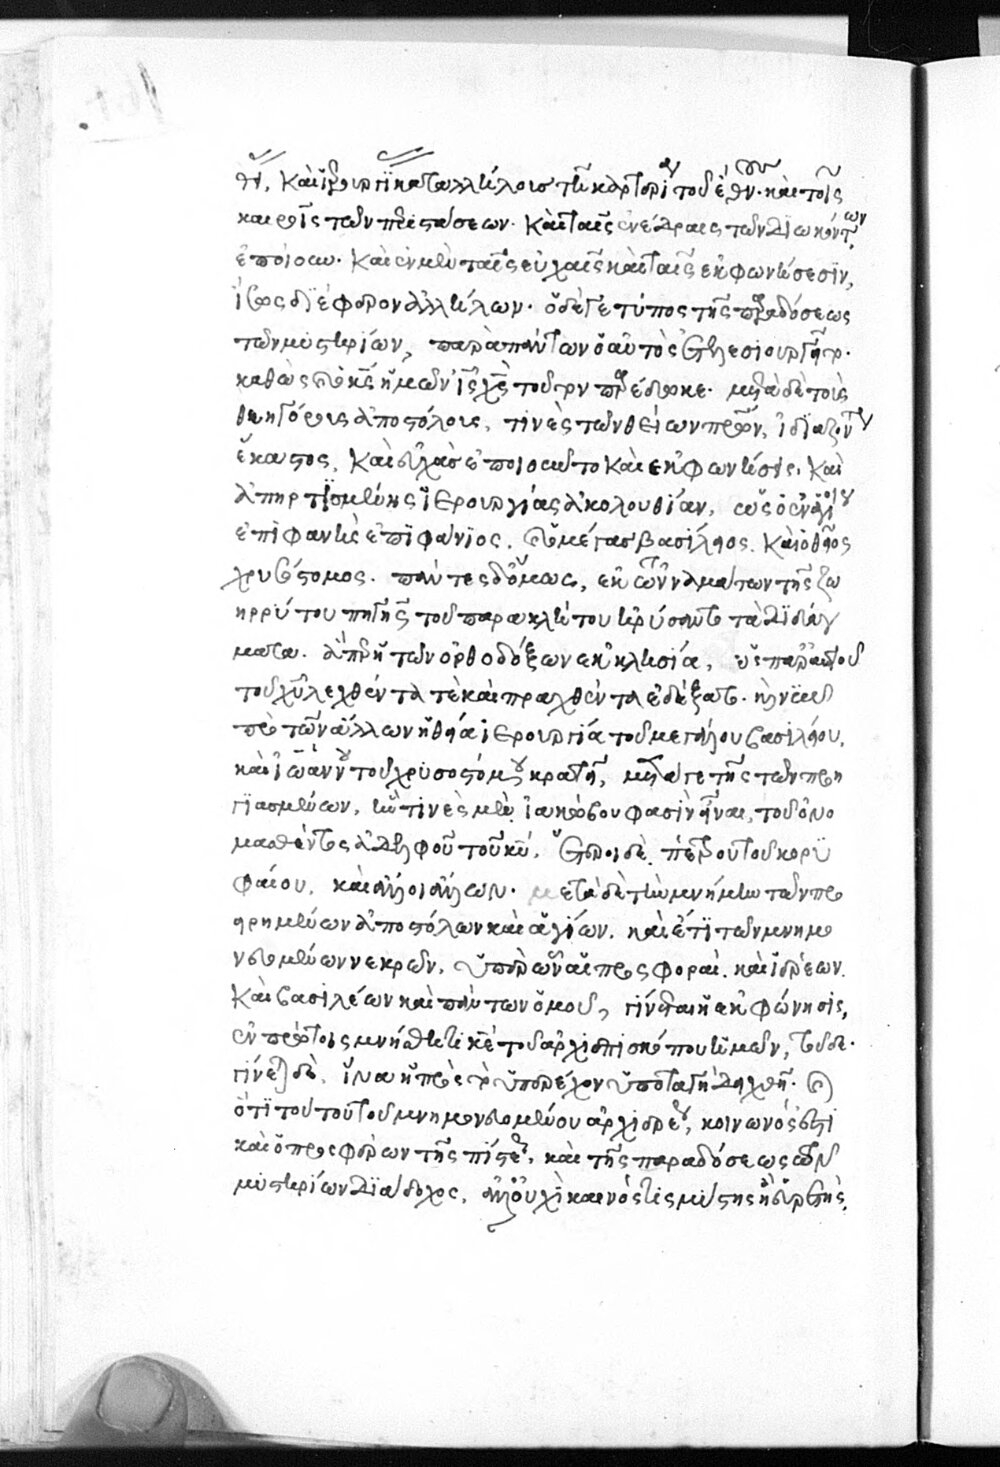 καὶ καταλλήλοις τοῦ ἔθν. καὶ τοῖς
καιροῖς τῶν περιστάσεων. καὶ ταῖς ἐνέδραις τῶν διωκόντων,
ἐποίουν. καὶ ἐν μὲν ταῖς εὐχαῖς καὶ ταῖς ἐκφωνήσεσϊν,
διέφερον ἀλλήλων. ὁ δέ γε τύπος τῆς παραδόσεως
τῶν μυστηρίων, παρὰ πάντων ὁ αὐτὸς
καθὼς ὁ κς ἡμῶν ις χς τοῦτον παρέδωκε. μετὰ δὲ τοὺς
θεηγόρους ἀποστόλους, τινὲς τῶν θείων πρων, ἰδιαζόντως
ἕκαστος, καὶ εὐχὰς ἐποίουντο καὶ ἐκφωνήσεις. καὶ
ἀπηρτϊσμένης ἱερουργίας ἀκολουθίαν, ὡς ὁ ἐν ἁγίοις
ἐπιφανὴς ἐπιφάνϊος. ὁ μέγας βασίλειος. καὶ ὁ θεῖος
χρυσόστομος. πάντες δ' ὅμως, ἐκ τῶν ναμάτων τῆς ζω
ηρρύτου πηγῆς τοῦ παρακλήτου ἠρύσαντο τὰ διδάγ
ματα. ἅπερ ἡ τῶν ὀρθοδόξων ἐκκλησία, ὡς παρ' αὐτοῦ
τοῦ χυ λεχθέντα τὲ καὶ πραχθέντα ἐδέξατο. καὶ νῦν
πρὸ τῶν ἄλλων ἡ θεία ἱερουργία τοῦ μεγάλου βασιλείου,
καὶ ἰωάννου τοῦ χρυσοστόμου κρατεῖ, μετά γε τῆς τῶν προη
γϊασμένων, ἣν τινὲς μὲν ἰακώβου φασὶν εἶναι, τοῦ ὀνο
μασθέντος ἀδελφοῦ τοῦ κυ, ἕτεροι δὲ πέτρου τοῦ κορυ
φαίου, καὶ ἄλλοι ἄλλων. μετὰ δὲ τὴν μνήμην τῶν προ
ειρημένων ἀποστόλων καὶ ἁγίων, καὶ ἔτϊ τῶν μνημο
νευομένων νεκρῶν, ὑπὲρ ὧν αἱ προσφοραὶ. καὶ ἱερέων.
καὶ βασιλέων καὶ πάντων ὁμοῦ, γίνεται ἡ ἐκφώνησις,
ἐν πρώτοις μνήσθητι κε τοῦ ἀρχιεπισκόπου ἡμῶν, τοῦδε.
γίνεται δὲ, ἵνα ἡ πρὸς τὸ ὑπερέχον ὑποταγὴ δειχθῇ. καὶ
ὅτϊ τοῦ τούτου μνημονευομένου ἀρχιερέως, κοινωνός ἐστι
καὶ ὁ προσφέρων τῆς πίστεως, καὶ τῆς παραδόσεως τῶν
μυστηρίων διάδοχος, ἀλλ' οὐχὶ καινός τις μύστης ἢ εὑρετής.